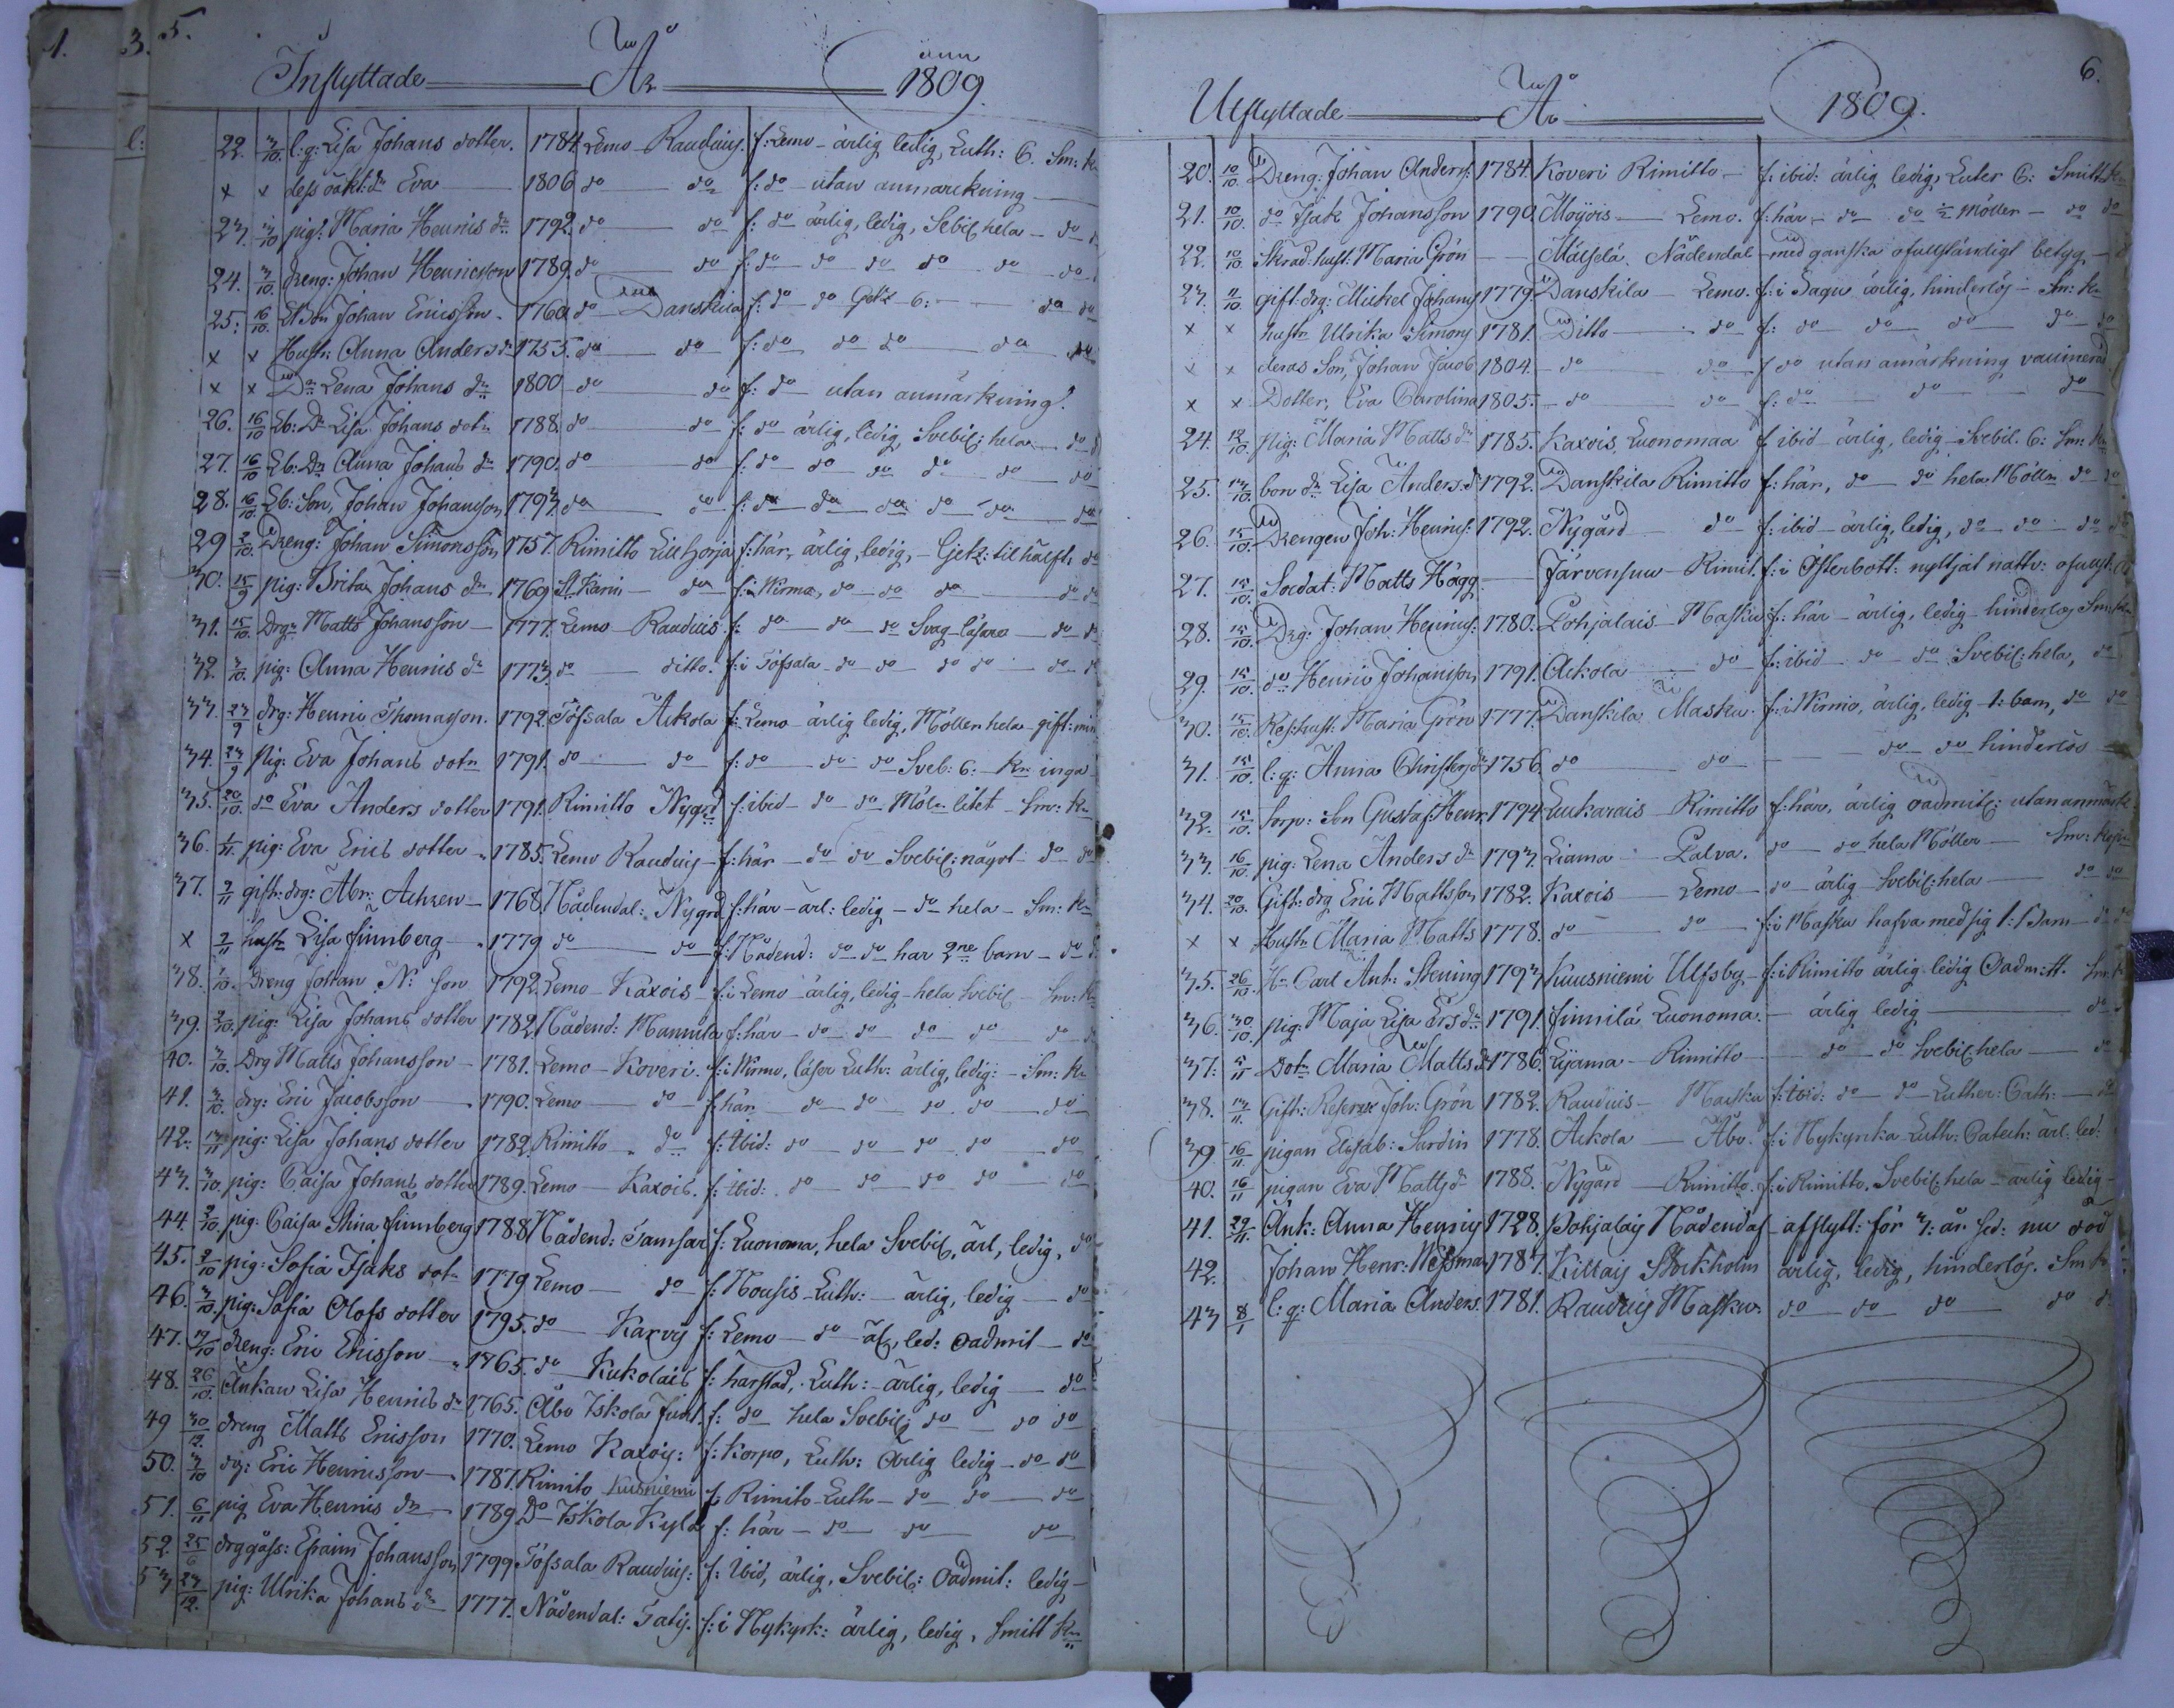 1.
3.
5.
Inflyttade År 1809.
22. 3/10. l: q: Lisa Johans dotter. 1784. Lemo Rauduis. f: Lemo - ärlig ledig, Luth: 6. Sm: k
x x dess oäkt: dr Eva 1806 do do f: do - utan anmärckning
23. 3/10 pig: Maria Henrics dr 1792. do do f: do ärlig, ledig, Sebil: hela - do
24. 3/10. dreng: Johan Henricsson 1789. do do f: do do do do do do
25: 16/10. Johan Ericsson. 1760. do Danskila f: do do 6: do do
x x Hustr: Anna Anders dr 1755. do do f: do do do do do
x x Dr Lena Johans dr 1800 do do f: do utan anmärkning.
26. 16/10 Eb: Dr Lisa Johans dotr 1788. do do f: do ärlig, ledig, Svebil: hela do
27. 16/10 Eb: Dr Anna Johans dr 1790. do do f: do do do do do do
28. 16/10. Eb: Son, Johan Johansson 1793. do do f: do do do do do do
29 2/10. Dreng: Johan Simonsson 1757. Rimitto Lillhorja f: här, ärlig, ledig, - Gjetz: til hälft, do
30. 15/9 pig: Brita Johans dr 1769 St Karin do f: i Wirmo, do do do do do
31. 15/10. Drgn Matts Johansson 1777. Lemo Rauduis. f: do do do Svag läsare do do
32. 3/10. pig: Anna Henrics dr 1773, do ditto. f: i Töfsala do do do do do
33. 23/9 drg: Henric Thomasson. 1792. Töfsala Ackola f: Lemo ärlig ledig, Möllen hela gift: min
34. 23/9 Pig: Eva Johans dotr 1791. do do f: do do do Sveb: 6: kn inga
35. 20/10. do Eva Anders dotter 1791. Rimitto Nygrd f: ibid - do do Mölr litet - Sm: k
36. 1/11. pig: Eva Erics dotter 1785. Lemo Rauduis f: här - do do Svebil: något do do
37. 2/11 gift: drg: Abr: Achren 1768. Nådendal: Nygrd f: här - ärl: ledig - do hela - Sm: k
x 2/11 hustr Lisa finnberg 1779 do do f: Nådend: do do har 2ne barn - do
38. 1/10. Dreng Johan N: son 1792. Lemo Kaxois f: i Lemo ärlig, ledig hela Svebil Sm: K
39. 2/10. pig: Lisa Johans dotter 1782. Nådend: Mannila f: här - do do do do do
40. 3/10. Drg Matts Johansson 1781. Lemo - Koveri. f: i Wirmo, läser Luth: ärlig, ledig: - Sm: K
41. 3/10. drg: Eric Jacobsson 1790. Lemo do f: här do do do do do
42. 13/11 pig: Lisa Johans dotter 1782 Rimitto do f: Ibid: do do do do do
43. 3/10. pig: Caisa Johans dotter 1789. Lemo Kaxois. f: ibid: do do do do do
44 2/10. pig: Caisa Stina finnberg 1788 Nådend: Tamsar f: Luonoma, hela Svebil, ärl, ledig, do
45. 2/10 pig: Sofia Isaks dotr 1779 Lemo do f: Nousis Luth: ärlig, ledig do
46. 3/10. pig: Sofia Olofs dotter 1795. do Karvis f: Lemo do äl:, led: oadmit do
47. 17/10 dreng: Eric Ericsson 1765. do Kukolais f: härstad, Luth: ärlig, ledig do
48. 26/10. Änkan Lisa Henrics dr 1765. Åbo Iskola f: do hela Svebil: do do do
49 30/12. dreng Matts Ericsson 1770. Lemo Kaxois: f: Korpo, Luth: Ärlig ledig - do do
50. 3/10 drg: Eric Henricsson 1787. Rimito Kusniemi f: Rimito Luth - do do do
51. 6/11 pig Eva Henrics dr 1789 Do Iskola Kyla f: här - do do do
52. 25/6 drggåss: Efraim Johansson 1799 Töfsala Rauduis: f: Ibid, ärlig, Svebil: Oadmit: ledig -
53 23/12. pig: Ulrika Johans dr 1777. Nådendal: Tatis. f: i Nykyrk: ärlig, ledig, Smitt kn
6.
Utflyttade År 1809.
20. 10/10. Dreng: Johan Anders: 1784. Koveri Rimitto f: ibid: ärlig ledig, Luter 6: Smitt k
21. 10/10. do Isak Johansson 1790. Moijois Lemo. f: här do do 1/2 Möller do do
22. 10/10. Skräd: hust: Maria Grön Mäiselä. Nådendal med ganska ofullständigt betyg
23. 11/10 gift: drg: Mickel Johans 1779 Danskila Lemo. f: i Sagu ärlig, hinderlös Sm: k
x x hustr Ulrika Simons 1781. Ditto do f: do do do do do
x x deras Son, Johan Jacob 1804. do do f do utan amärkning vaccinerad
x x Dotter, Eva Carolina 1805. do do f: do do do
24. 12/10. pig: Maria Matts dr 1785. Kaxois, Luonomaa f ibid ärlig, ledig Svebil. 6: Sm: k
25. 13/10. bon dr Lisa Anders dr 1792. Danskila Rimitto f: här, do do hela Mölln do do
26. 15/10. Drengen Joh: Henrics: 1792. Nygård do f: ibid ärlig, ledig, do do do
27. 15/10. Soldat: Matts Hägg Järvensuu Rimit. f: i Österbott: nyttjat nattv: ofullst
28. 15/10. Drg: Johan Henrics: 1780. Pohjalais Masku f: här ärlig, ledig hinderlös Sm: k
29. 15/10. do: Henric Johansson 1791. Ackola do f: ibid do do Svebil: hela, do
30. 15/10. Res: hust: Maria Grön 1777. Danskila Masku. f: i Wirmo, ärlig, ledig 1: barn, do do
31. 15/10. l: q: Anna Christersdr 1756. do do do do hinderlös
32. 15/10. Torp: Son Gustaf: Henr: 1794 Luukarais Rimitto f: här, ärlig oadmit: utan anmärk
33. 16/10 pig: Lena Anders dr 1793. Liama Palva. do do hela Möller Sm: kopr
34. 20/10. Gift: drg Eric Mattsson 1782. Kaxois Lemo do ärlig Svebil: hela do do
x x Hustr Maria Matts 1778. do do f: i Masku hafva med sig 1: Barn do do
35. 26/10. Hr. Carl Ant: Stening 1793 Kuusniemi Ulfsby f: i Rimitto ärlig ledig Oadm: tt. Sm: k
36. 30/10. pig: Maja Lisa Ers dr 1791. finnilä Luonoma. ärlig ledig do
37: 5/11 Dotr Maria Matts dr 1786. Lijama Rimitto do do Svebil: hela do
38. 13/11. Gift: Reserv: Joh: Grön 1782. Rauduis Masku f: ibid: do do Luther: Cath: do
39 16/11. pigan Elisab: Sardin 1778. Ackola Åbo. f: i Nykyrka Luth: Catech: ärl: led:
40. 16/11 pigan Eva Matts dr 1788. Nygård Rimitto. f: i Rimitto, Svebil: hela ärlig ledig
41. 29/11. Änk: Anna Henrics 1728. Pohjalais Nådendal afflytt: för 3: år sed: nu död
42. Johan Henr: Wessman 1787. Killais Stockholm ärlig, ledig, hinderlös. Sm k
43 8/1 l: q: Maria Anders. 1781. Rauduis Masku. do do do do d